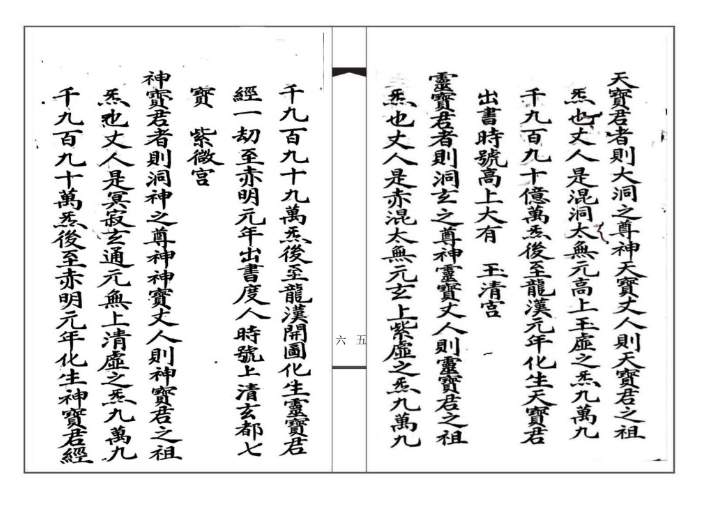 天寶君者則大洞之尊神天寶丈人則天寶君之祖
炁也丈人是混洞太無元高上玉虛之炁九萬九
千九百九十億萬炁後至龍漢元年化生天寶君
出書時號高上大有　玉清宮
靈寶君者則洞玄之尊神靈寶丈人則靈寶君之祖
炁也丈人是赤混太無元玄上紫虛之炁九萬九
五
六
千九百九十九萬炁後至龍漢開圖化生靈寶君
經一劫至赤明元年出書度人時號上清玄都七
寶　紫微宮
神寶君者則洞神之尊神神寶丈人則神寶君之祖
炁也丈人是冥寂玄通元無上清虛之炁九萬九
千九百九十萬炁後至赤明元年化生神寶君經